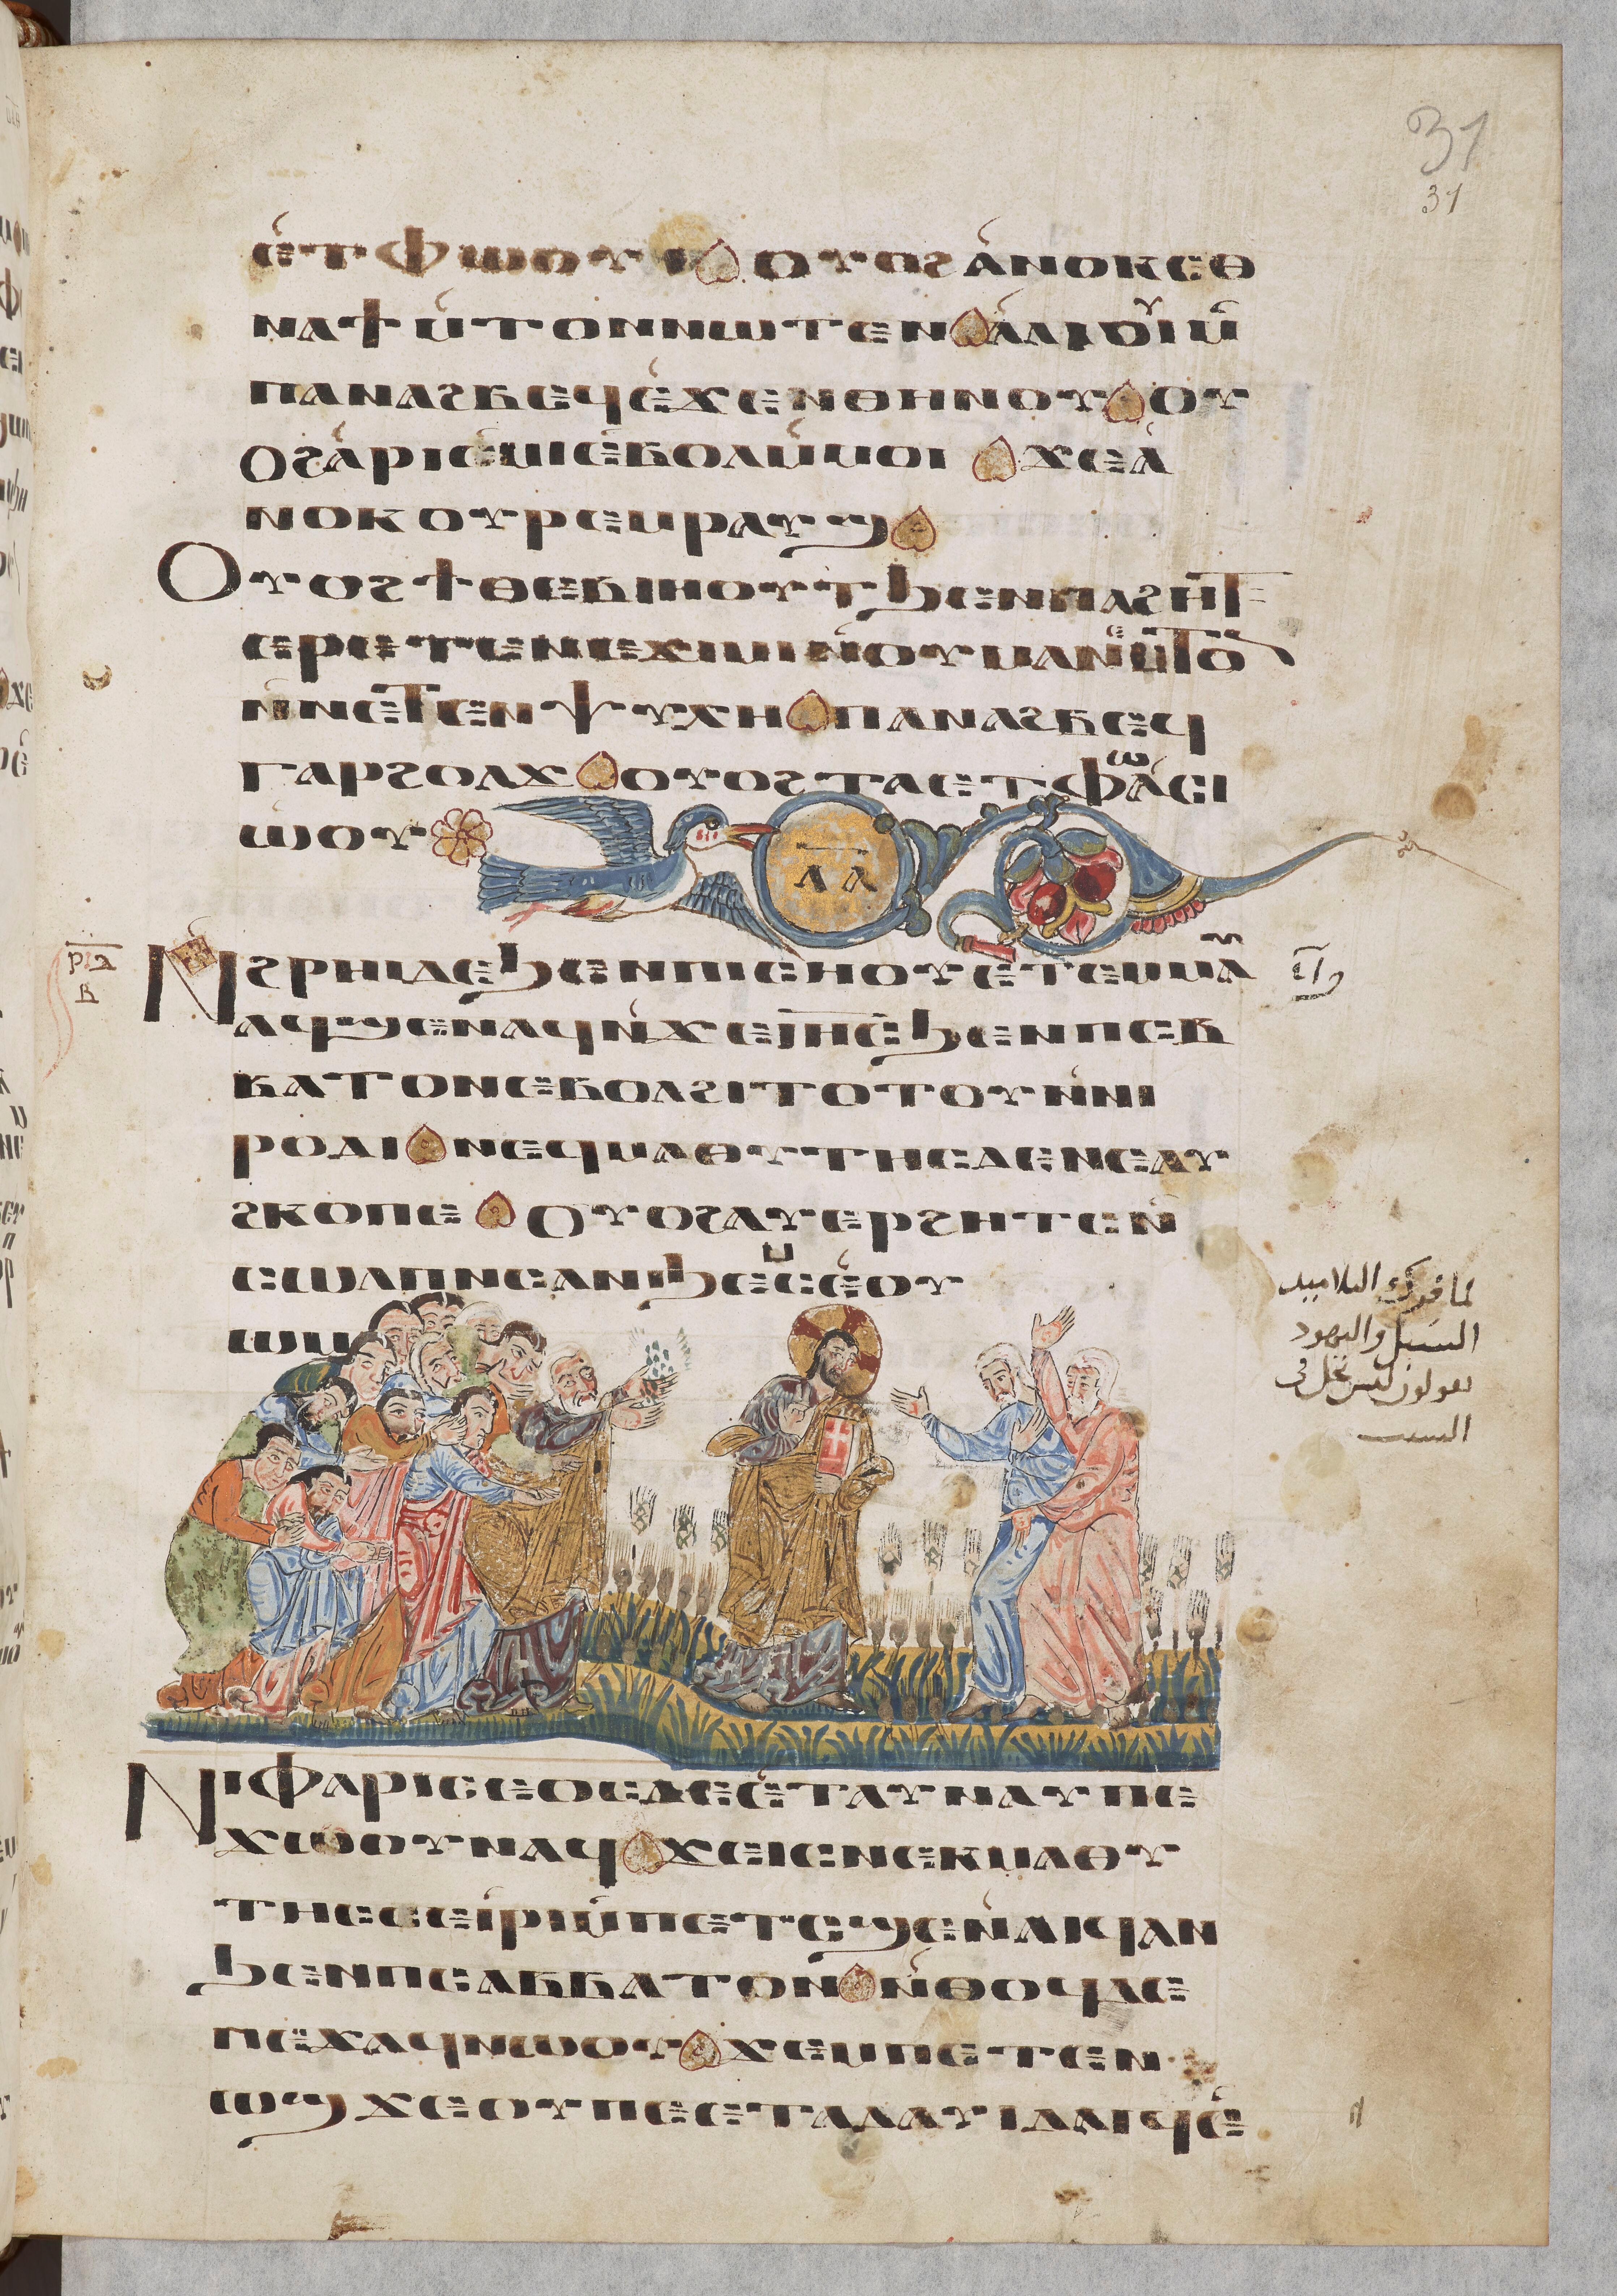 31
31
ⲉ̀ⲧⲫⲱⲟⲩⲓ ⲟⲩⲟϩ ⲁ̀ⲛⲟⲕ ⲉⲑ
ⲛⲁϯⲙ̀ⲧⲟⲛ ⲛⲱⲧⲉⲛ ⲁ̀ⲗⲓⲟⲩⲓ ⲙ̀
ⲡⲁⲛⲁϩⲃⲉϥ ⲉ̀ϫⲉⲛ ⲑⲏⲛⲟⲩ ⲟⲩ
ⲟϩ ⲁ̀ⲣⲓⲉ̀ⲙⲓ ⲉ̀ⲃⲟⲗ ⲙ̀ⲙⲟⲓ ϫⲉ ⲁ̀
ⲛⲟⲕ ⲟⲩⲣⲉⲙⲣⲁⲩϣ
Ⲟⲩⲟϩ ϯⲑⲉⲃⲓⲏⲟⲩⲧ ϧⲉⲛ ⲡⲁϩⲏⲧ
ⲉⲣⲉⲧⲉⲛⲉϫⲓⲙⲓ ⲛ̀ⲟⲩⲙⲁⲛⲉⲙ̀ⲧⲟ
ⲛ̀ⲛⲉⲧⲉⲛⲯⲩⲭⲏ ⲡⲁⲛⲁϩⲃⲉϥ
ⲅⲁⲣ ϩⲟⲗϫ ⲟⲩⲟϩ ⲧⲁⲉⲧⲫⲱ ⲁ̀ⲥⲓ
ⲱⲟⲩ
ⲗⲁ
ⲣⲓⲇ
ⲃ
Ⲛϩⲣⲏⲓ ⲇⲉ ϧⲉⲛ ⲡⲓⲥⲏⲟⲩ ⲉ̀ⲧⲉⲙⲙⲁ
ⲁϥϣⲉⲛⲁϥ ⲛ̀ϫⲉ ⲓⲏⲥ ϧⲉⲛ ⲡⲥⲁⲃ
ⲃⲁⲧⲟⲛ ⲉⲃⲟⲗϩⲓⲧⲟⲧⲟⲩ ⲛ̀ⲛⲓ
ⲣⲟϯ ⲛⲉϥⲙⲁⲑⲩⲧⲏⲥ ⲇⲉ ⲛⲉⲁⲩ
ϩⲕⲟ ⲡⲉ ⲟⲩⲟϩ ⲁⲩⲉⲣϩⲏⲧⲥ ⲛ̀
ⲥⲱⲗⲡ ⲛϩⲁⲛϧⲉⲙⲥ ⲉ̀ⲟⲩ
ⲱⲙ
لما فرك التلاميد
السنبل واليهود
يقولون ليس يحل فى
السبت
Ⲛⲓⲫⲁⲣⲓⲥⲉⲟⲥ ⲇⲉ ⲉ̀ⲧⲁⲩⲛⲁⲩ ⲡⲉ
ϫⲱⲟⲩ ⲛⲁϥ ϫⲉ ⲓⲥ ⲛⲉⲕⲙⲁⲑⲩ
ⲧⲏⲥ ⲥⲉⲓ̀ⲣⲓ ⲙ̀ⲡⲉⲧⲥϣⲉ ⲛ̀ⲁⲓϥ ⲁⲛ
ϧⲉⲛ ⲡⲥⲁⲃⲃⲁⲧⲟⲛ ⲛ̀ⲑⲟϥ ⲇⲉ
ⲡⲉϫⲁϥ ⲛⲱⲟⲩ ϫⲉ ⲙⲡⲉⲧⲉⲛ
ⲱϣ ϫⲉ ⲟⲩ ⲡⲉ ⲉⲧⲁ ⲇⲁⲩⲓⲇ ⲁⲓϥ ⲉ̀